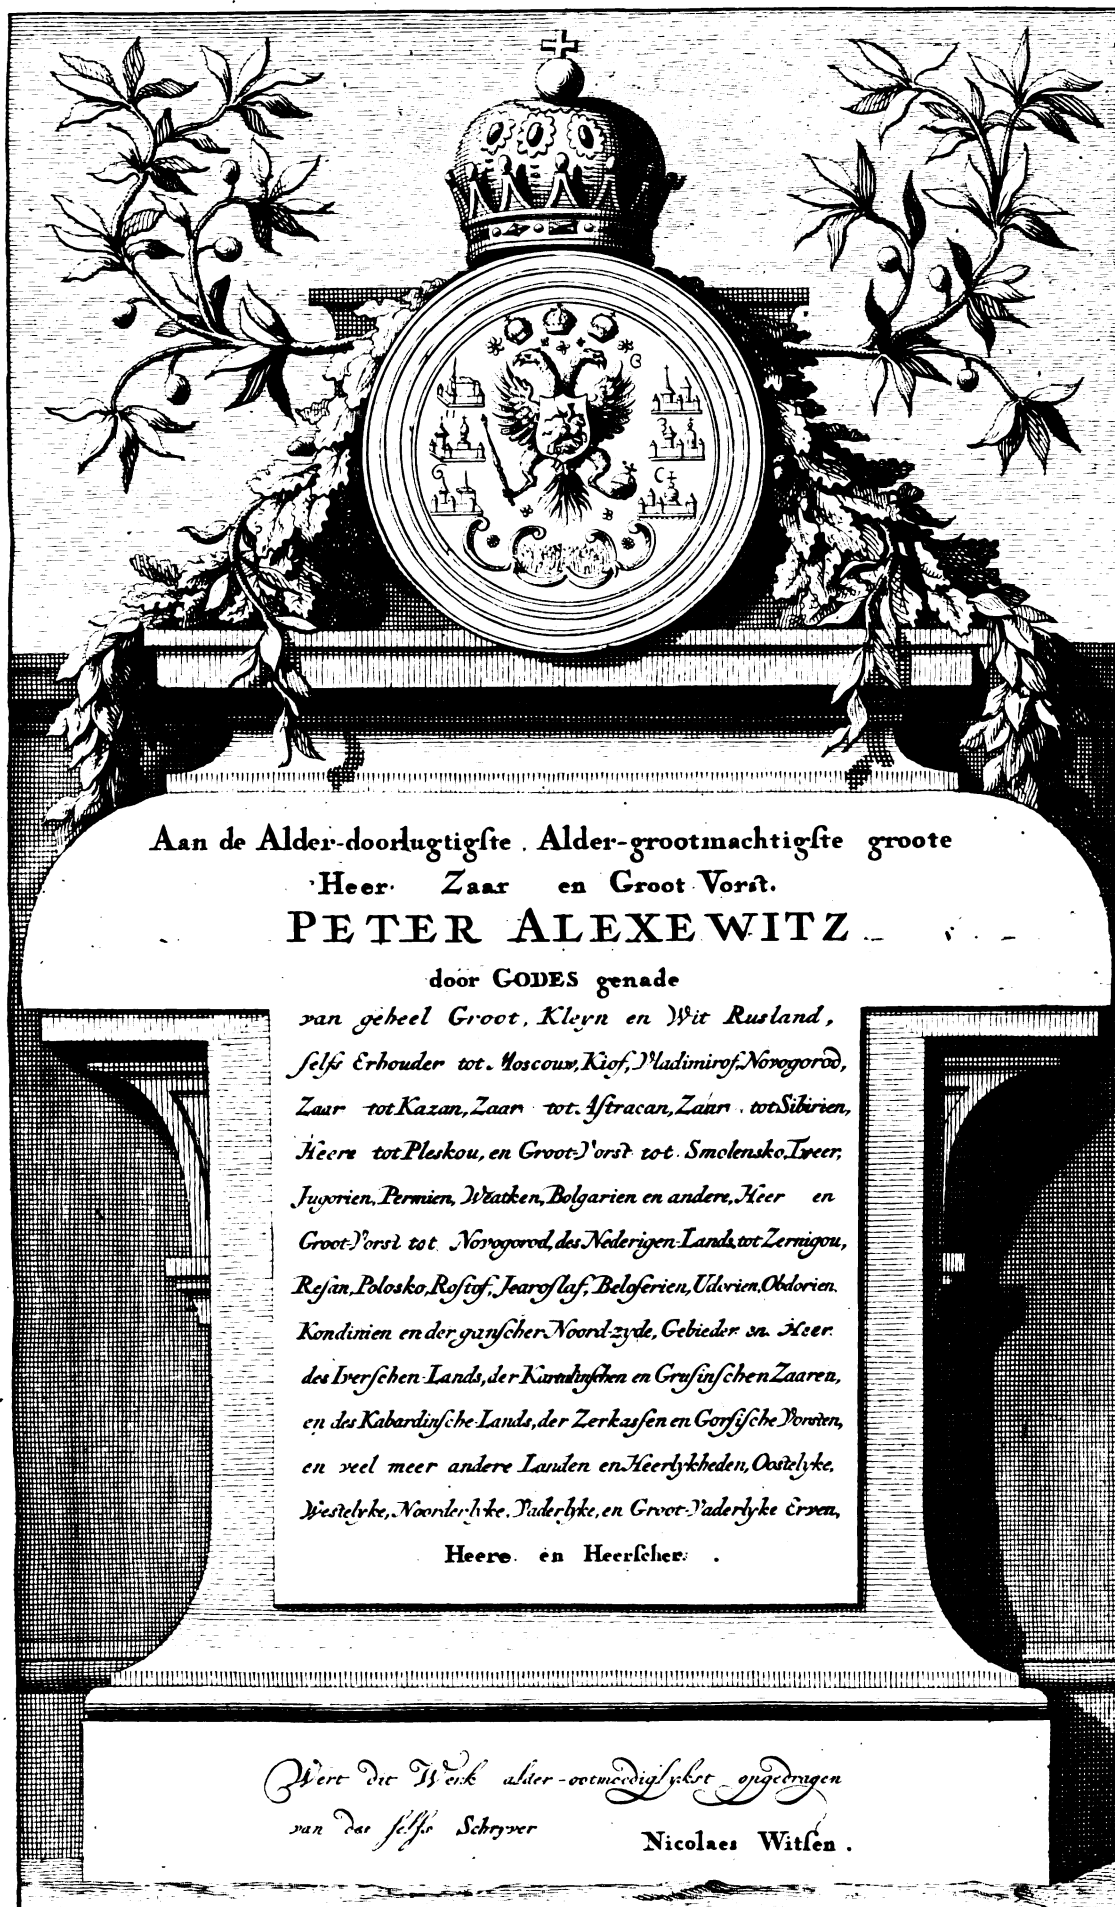 Aan de Alder-doorlugtigſte. Alder-grootmachtigſte groote
Heer. Zaar en Groot Vorſt.
PETER ALEXEWITZ
door GODES genade
van geheel Groot, Kleyn en Wit Rusland,
ſelfs Erhouder tot Moscouw, Kiof, Vladimirof, Novogorod,
Zaar tot Kazan, Zaar tot Aſtracan, Zaar tot Sibirien,
Heere tot Pleskou, en Groot-Vorst tot Smolensko, Tweer,
Jugorien, Permien, Wiatken, Bolgarien en andere, Heer en
Groot-Vorst tot Novogorod, des Nederigen-Lands, tot Zernigou,
Reſan, Polosko, Roſtof, Jearoſlaf, Beloſerien, Udorien, Obdorien,
Kondinien en der ganſcher Noord-zyde, Gebieder en Heer
des Iverſchen-Lands, der Kartalinſchen en Gruſinſchen Zaaren,
en des Kabardinſche-Lands, der Zerkasſen en Gorſiſche Vorsten,
en veel meer andere Landen en Heerlykheden, Oostelyke,
Westelyke, Noorderlyke, Vaderlyke, en Groot-Vaderlyke Erven,
Heere en Heerſcher.
Wert dit Werk alder-ootmoediglykst opgedragen
van des ſelfs Schryver
Nicolaes Witſen.